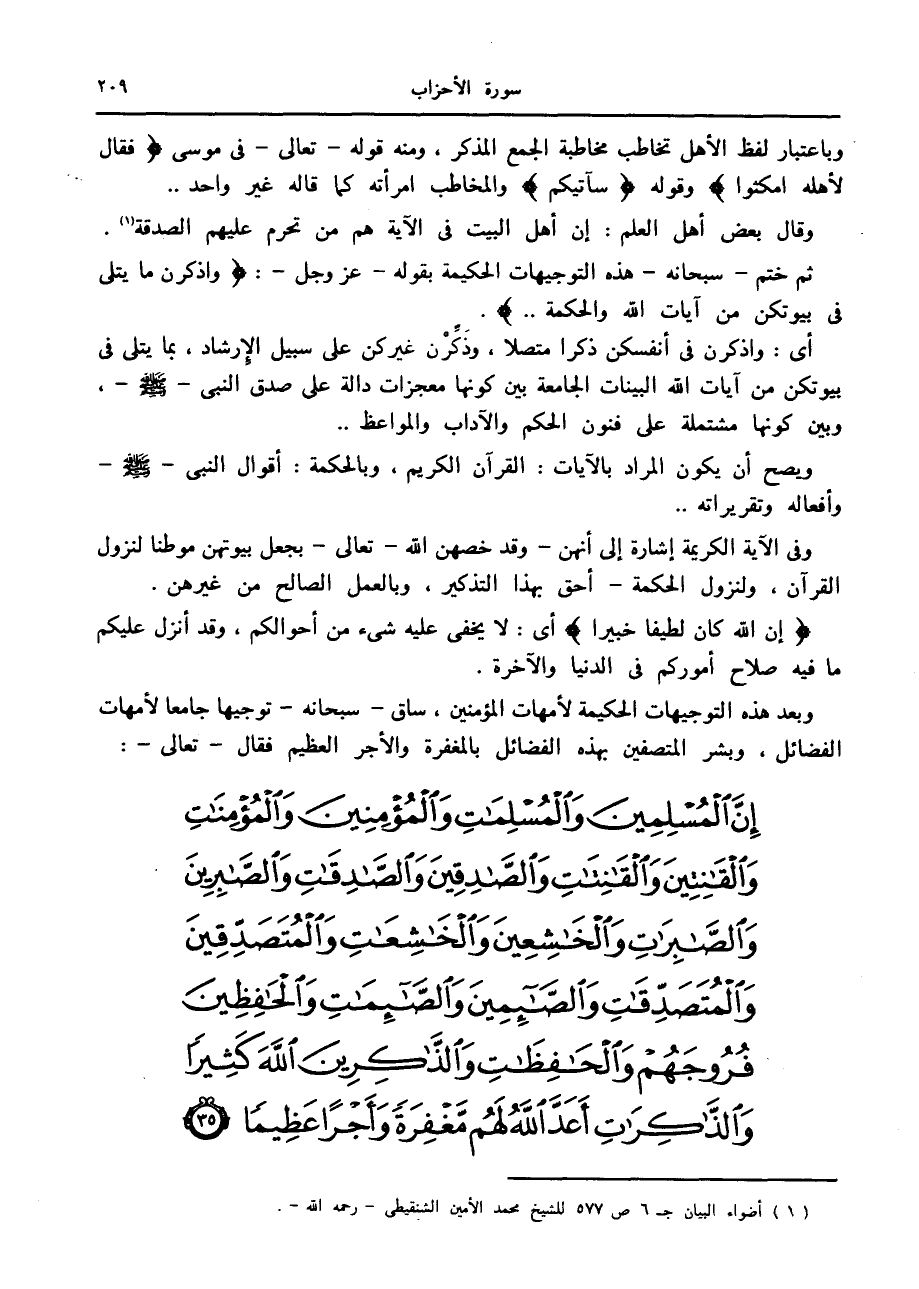 سورة الأحزاب ٢٠٩
وباعتبار لفظ الأهل تخاطب مخاطبة الجمع المذكر ، ومنه قوله - تعالى - فى موسى ﴿ فقال
لأهله امكثوا ﴾ وقوله ﴿ سآتيكم ﴾ والمخاطب امرأته كما قاله غير واحد ..
وقال بعض أهل العلم : إن أهل البيت فى الآية هم من تحرم عليهم الصدقة(١) .
ثم ختم - سبحانه - هذه التوجيهات الحكيمة بقوله - عز وجل - : ﴿ واذكرن ما يتلى
فى بيوتكن من آيات الله والحكمة .. ﴾ .
أى : واذكرن فى أنفسكن ذكرا متصلا ، وذَكِّرْن غيركن على سبيل الإرشاد ، بما يتلى فى
بيوتكن من آيات الله البينات الجامعة بين كونها معجزات دالة على صدق النبى - ﷺ - ،
وبين كونها مشتملة على فنون الحكم والآداب والمواعظ ..
ويصح أن يكون المراد بالآيات : القرآن الكريم ، وبالحكمة : أقوال النبى - ﷺ -
وأفعاله وتقريراته ..
وفى الآية الكريمة إشارة إلى أنهن - وقد خصهن الله - تعالى - بجعل بيوتهن موطنا لنزول
القرآن ، ولنزول الحكمة - أحق بهذا التذكير ، وبالعمل الصالح من غيرهن .
﴿ إن الله كان لطيفا خبيرا ﴾ أى : لا يخفى عليه شىء من أحوالكم ، وقد أنزل عليكم
ما فيه صلاح أموركم فى الدنيا والآخرة .
وبعد هذه التوجيهات الحكيمة لأمهات المؤمنين ، ساق - سبحانه - توجيها جامعا لأمهات
الفضائل ، وبشر المتصفين بهذه الفضائل بالمغفرة والأجر العظيم فقال - تعالى - :
إِنَّ ٱلْمُسْلِمِينَ وَٱلْمُسْلِمَٰتِ وَٱلْمُؤْمِنِينَ وَٱلْمُؤْمِنَٰتِ
وَٱلْقَٰنِتِينَ وَٱلْقَٰنِتَٰتِ وَٱلصَّٰدِقِينَ وَٱلصَّٰدِقَٰتِ وَٱلصَّٰبِرِينَ
وَٱلصَّٰبِرَٰتِ وَٱلْخَٰشِعِينَ وَٱلْخَٰشِعَٰتِ وَٱلْمُتَصَدِّقِينَ
وَٱلْمُتَصَدِّقَٰتِ وَٱلصَّٰٓئِمِينَ وَٱلصَّٰٓئِمَٰتِ وَٱلْحَٰفِظِينَ
فُرُوجَهُمْ وَٱلْحَٰفِظَٰتِ وَٱلذَّٰكِرِينَ ٱللَّهَ كَثِيرًا
وَٱلذَّٰكِرَٰتِ أَعَدَّ ٱللَّهُ لَهُم مَّغْفِرَةً وَأَجْرًا عَظِيمًا ٣٥
(١) أضواء البيان جـ ٦ ص ٥٧٧ للشيخ محمد الأمين الشنقيطى - رحمه الله - .